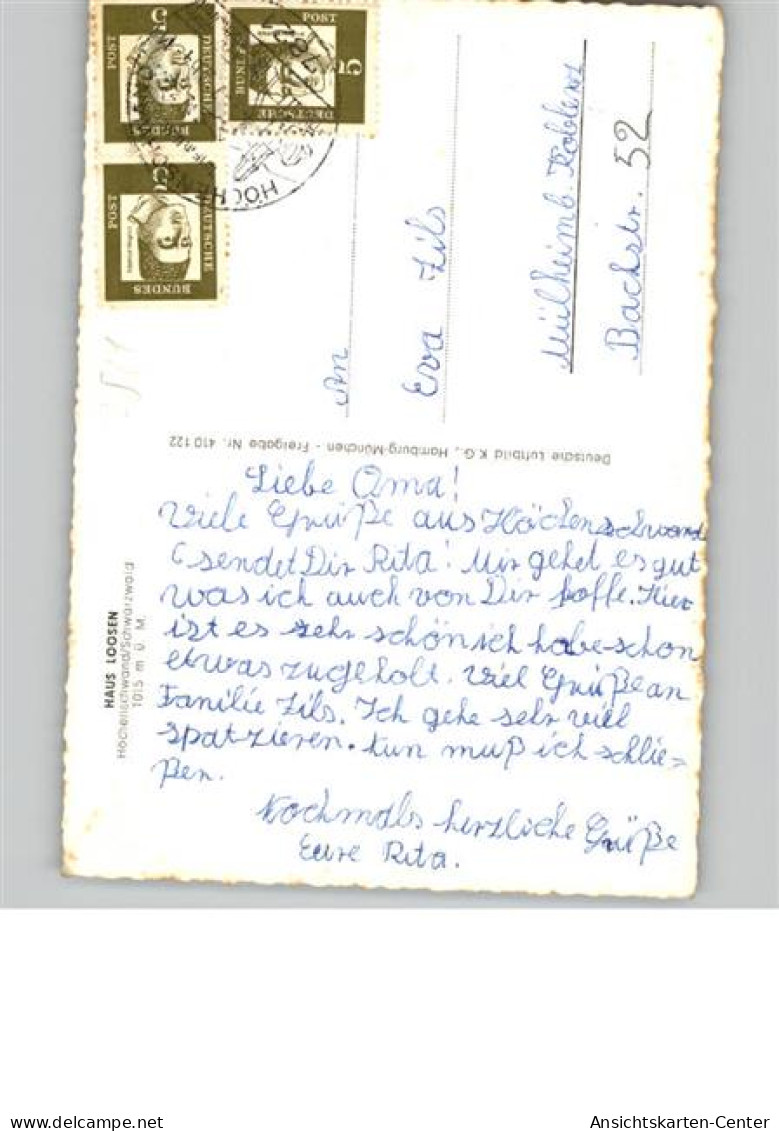 Liebe Oma!
Viele Grüße aus Höchenschwand
sendet Dir Rita! Mir gehet es gut
was ich auch von Dir hoffe. Hier
ist es sehr schön ich habe schon
etwas zugeholt. Viel Grüße an
Familie Zils. Ich gehe sehr viel
spatzieren. Nun muß ich schlie=
ßen.
Nochmals herzliche Grüße
Eure Rita.
An
Eva Zils
Mülheim b. Koblenz
Bachstr. 52
Deutsche Luftbild K.G., Hamburg-München - Freigabe Nr. 410 122
HAUS LOOSEN
Höchenschwand/Schwarzwald
1015 m ü. M.
5
DEUTSCHE
BUNDES
POST
5
DEUTSCHE
BUNDES
POST
5
DEUTSCHE
BUNDES
POST
Ansichtskarten-Center